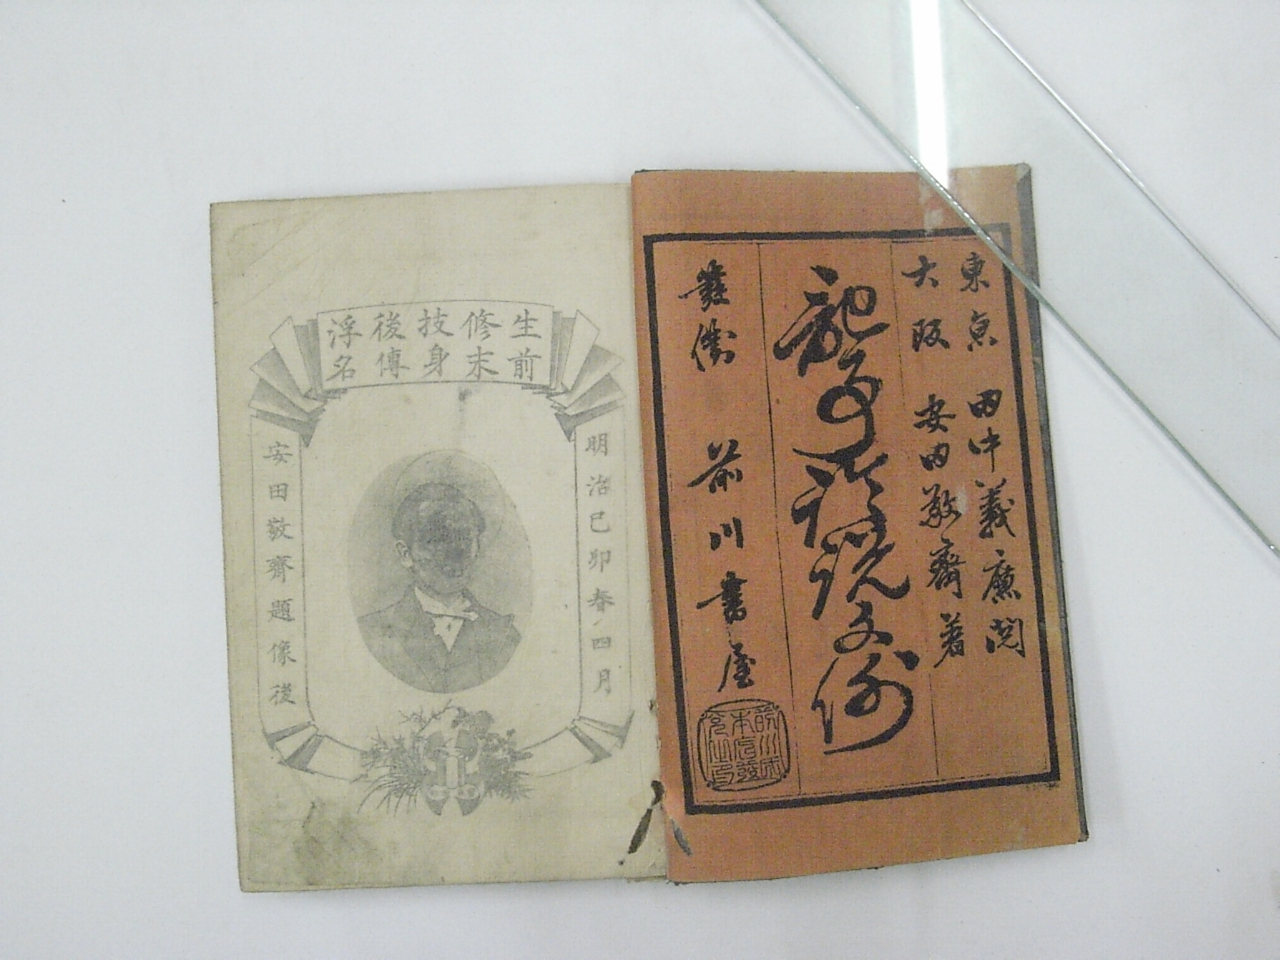 東京 田中義廉閲
大阪 安田敬齋著
記事論説文例
發衝 前川書屋
生前
修末
技身
後傳
浮名
明治己卯春四月
安田敬齊題像後